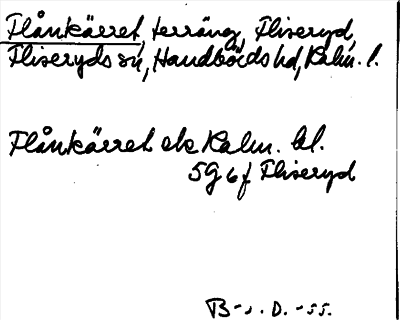 Flånkärret, terräng, Fliseryd,
Fliseryds sn, Handbörds hd, Kalm. l.
Flånkärret ek Kalm. bl.
5G6f Fliseryd
B-s. D. -55.